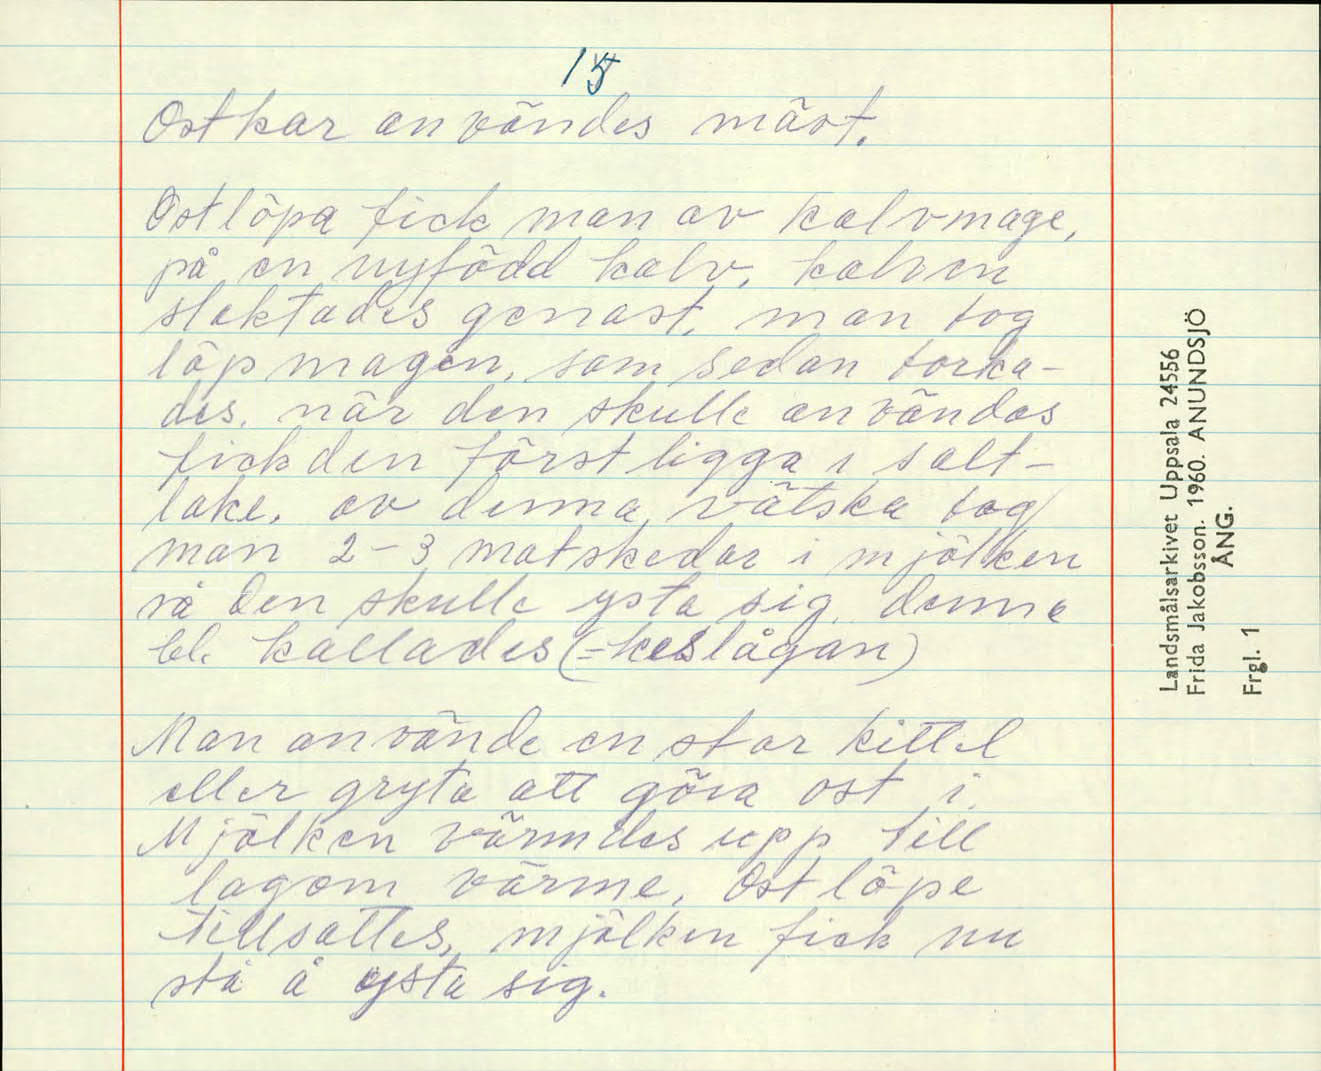 15
Ostkar användes mäst.
Ostlöpa fick man av kalvmage,
på en nyfödd kalv, kalven
slaktades genast, man tog
löpmagen, som sedan torka-
des. när den skulle användas
fick den först ligga i salt-
lake. av denna vätska tog
man 2-3 matskedar i mjölken
nä den skulle ysta sig, denna
bl. kallades (=keslågan)
Man använde en stor kittel
eller gryta att göra ost i.
Mjölken värmdes upp till
lagom värme, Ostlöpe
tillsattes, mjölken fick nu
stå å ysta sig.
Landsmålsarkivet Uppsala 24556
Frida Jakobsson. 1960. ANUNDSJÖ
ÅNG.
Frgl. 1